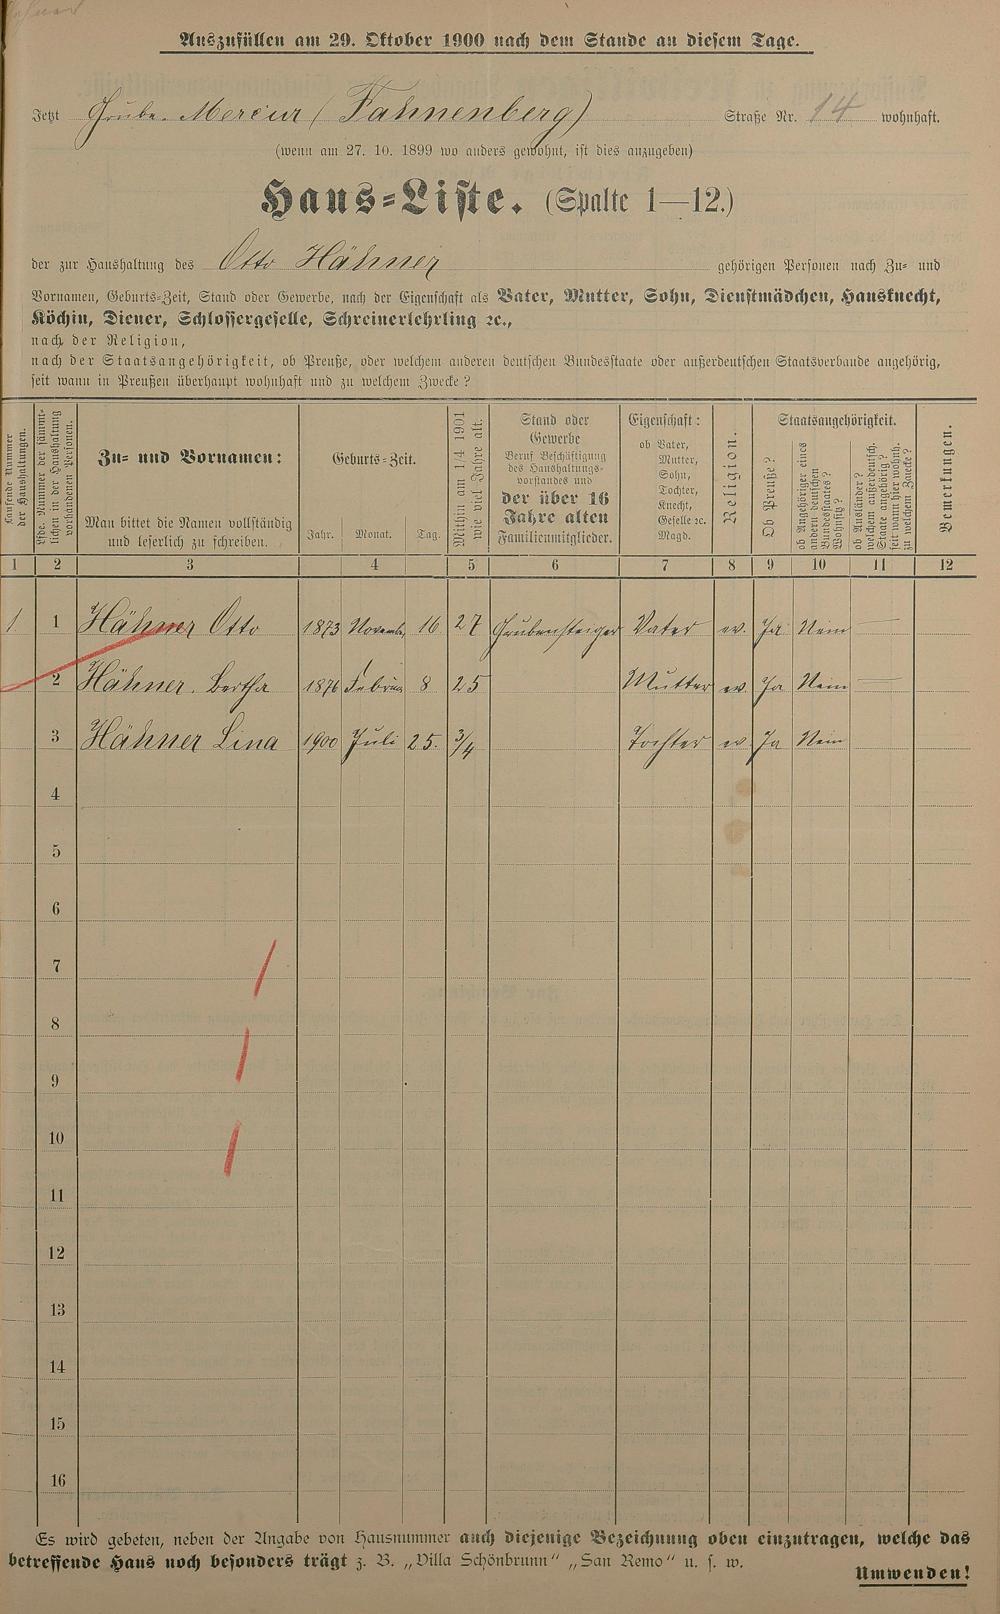 Auszufüllen am 29. Oktober 1900 nach dem Stande an diesem Tage.
Jetzt Grube Mercur (Fahnenberg) Straße Nr. 14 wohnhaft.
(wenn am 27. 10. 1899 wo anders gewohnt, ist dies anzugeben)
Haus=Liste. (Spalte 1—12.)
der zur Haushaltung des Otto Hähner gehörigen Personen nach Zu= und
Vornamen, Geburts=Zeit, Stand oder Gewerbe, nach der Eigenschaft als Vater, Mutter, Sohn, Dienstmädchen, Hausknecht,
Köchin, Diener, Schlossergeselle, Schreinerlehrling ꝛc.,
nach der Religion,
nach der Staatsangehörigkeit, ob Preuße, oder welchem anderen deutschen Bundesstaate oder außerdeutschen Staatsverbande angehörig,
seit wann in Preußen überhaupt wohnhaft und zu welchem Zwecke?
Laufende Nummer
der Haushaltungen.
Lfde. Nummer der sämmt-
lichen in der Haushaltung
vorhandenen Personen.
Zu= und Vornamen:
Man bittet die Namen vollständig
und leserlich zu schreiben.
Geburts=Zeit.
Jahr. Monat. Tag.
Mithin am 1/4 1901
wie viel Jahre alt.
Stand oder
Gewerbe
Beruf Beschäftigung
des Haushaltungs-
vorstandes und
der über 16
Jahre alten
Familienmitglieder.
Eigenschaft:
ob Vater,
Mutter,
Sohn,
Tochter,
Knecht,
Geselle ꝛc.
Magd.
Religion.
Staatsangehörigkeit.
Ob Preuße?
ob Angehöriger eines
andern deutschen
Bundesstaates?
Wohnsitz?
ob Ausländer?
welchem außerdeutsch.
Staate angehörig?
seit wann hier wohnh.
zu welchem Zwecke?
Bemerkungen.
1 2 3 4 5 6 7 8 9 10 11 12
1. 1 Hähner Otto 1873 November 16 27 Grubensteiger Vater ev. Ja Nein —
2 Hähner. Bertha 1876 Februar 8 25 Mutter ev. Ja Nein —
3 Hähner Lina 1900 Juli 25. 3/4 Tochter ev. Ja Nein
4
5
6
7
8
9
10
11
12
13
14
15
16
Es wird gebeten, neben der Angabe von Hausnummer auch diejenige Bezeichnung oben einzutragen, welche das
betreffende Haus noch besonders trägt z. B. „Villa Schönbrunn“ „San Remo“ u. s. w.
Umwenden!